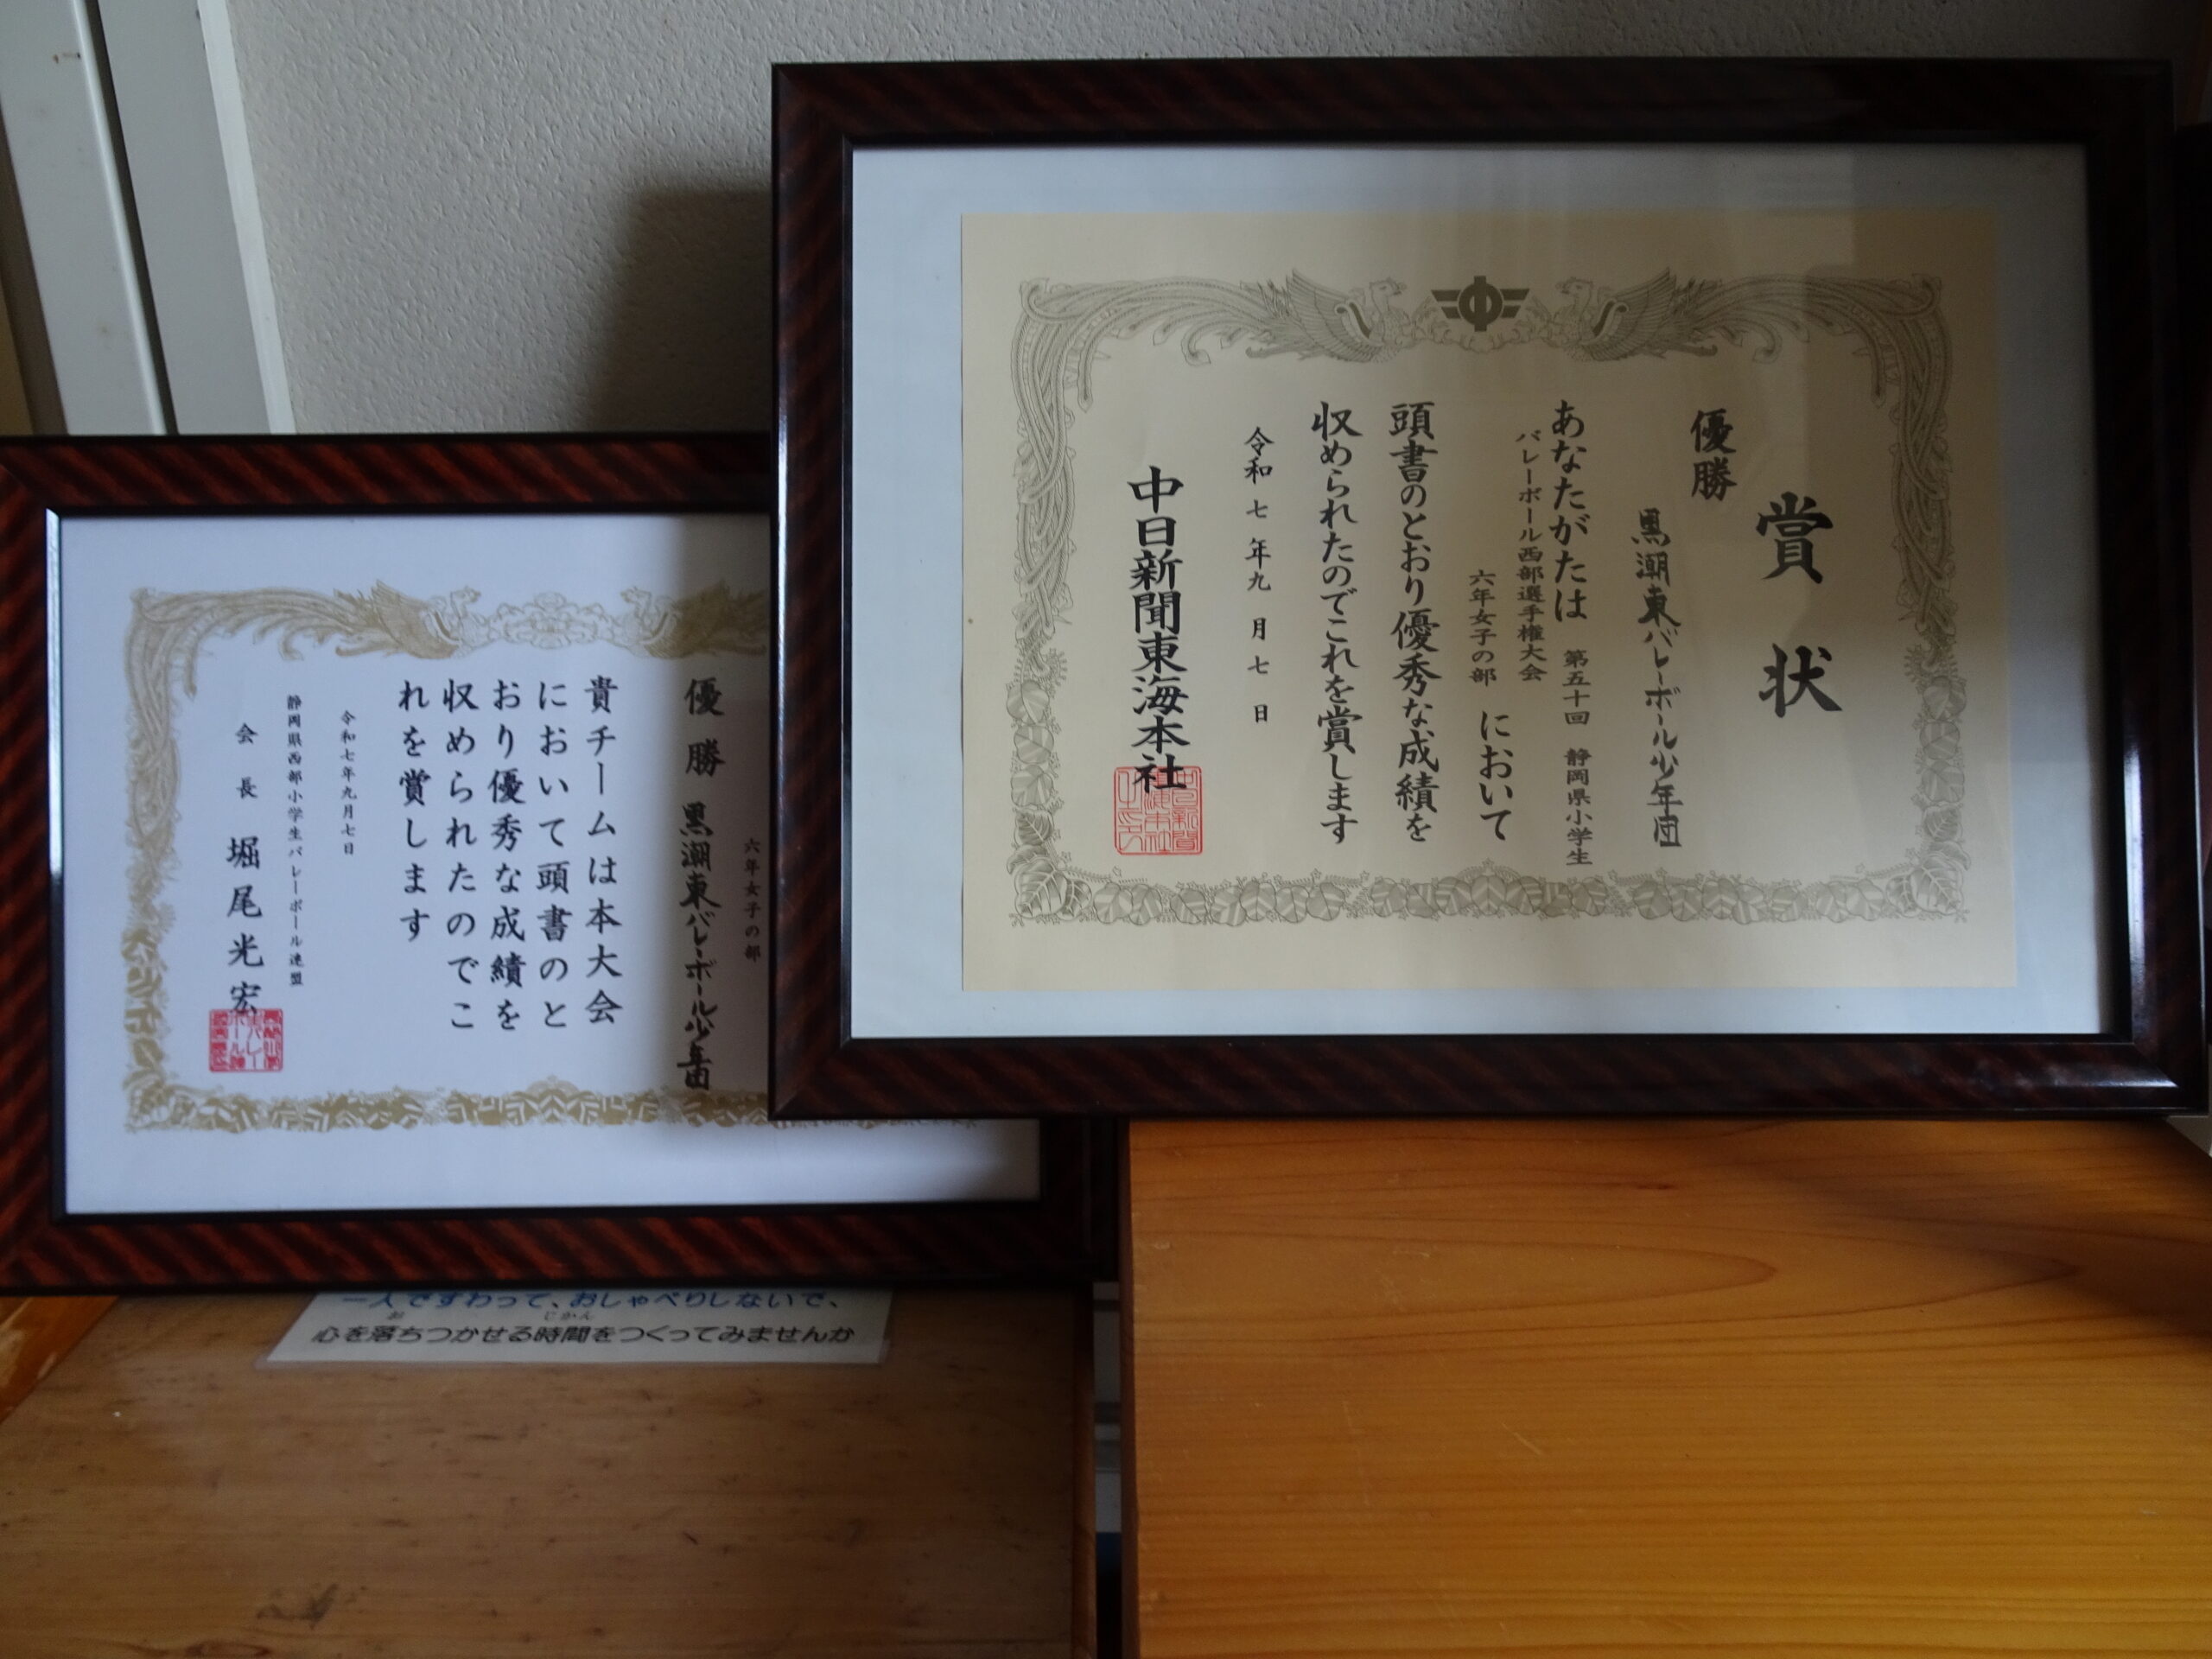 賞状
優勝
黒潮東バレーボール少年団
あなたがたは 第五十回 静岡県小学生
バレーボール西部選手権大会
六年女子の部 において
頭書のとおり優秀な成績を
収められたのでこれを賞します
令和七年九月七日
中日新聞東海本社
六年女子の部
優勝 黒潮東バレーボール少年団
貴チームは本大会
において頭書のと
おり優秀な成績を
収められたのでこ
れを賞します
令和七年九月七日
静岡県西部小学生バレーボール連盟
会長 堀尾光宏
一人ですわって、おしゃべりしないで、
心を落ちつかせる時間をつくってみませんか